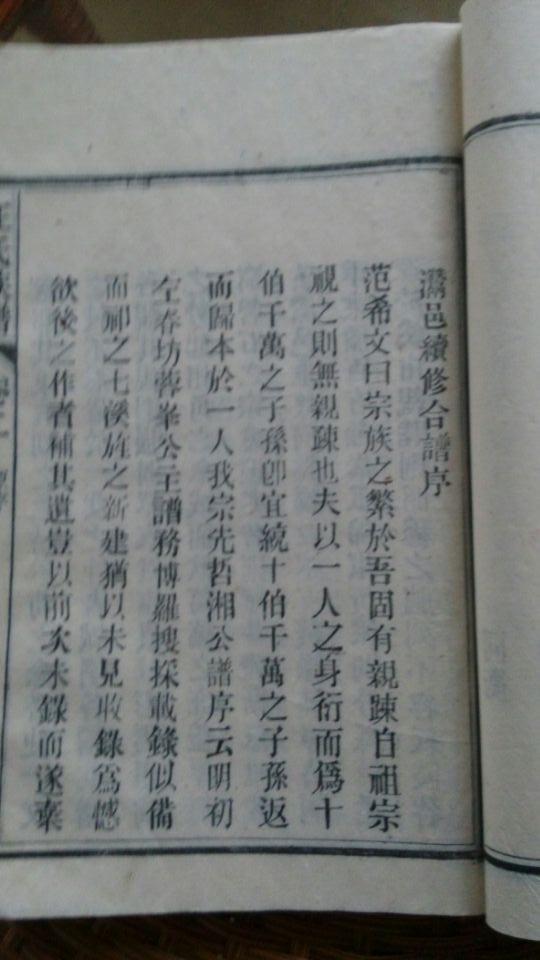 灊邑續修合譜序
范希文曰宗族之繁於吾固有親踈自祖宗
視之則無親踈也夫以一人之身衍而爲十
伯千萬之子孫卽宜統十伯千萬之子孫返
而歸本於一人我宗先哲湘公譜序云明初
左春坊蓉峯公主譜務博羅搜採載錄似備
而祁之七溪旌之新建猶以未見收錄爲憾
欲後之作者補其遺豈以前次未錄而遂棄
氏族譜